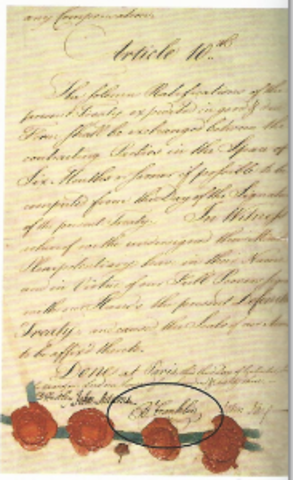 any Compensation.
Article 10th
The solemn Ratifications of the
present Treaty expedited in good & due
Form shall be exchanged between the
contracting Parties in the Space of
Six Months or sooner if possible to be
computed from the Day of the Signature
of the present Treaty. In Witness
whereof we the undersigned their Ministers
Plenipotentiary have in their Name
and in Virtue of our Full Powers signed
with our Hands the present Definitive
Treaty, and caused the Seals of our Arms
to be affixed thereto.
Done at Paris, this third Day of September
D Hartley John Adams B Franklin John Jay